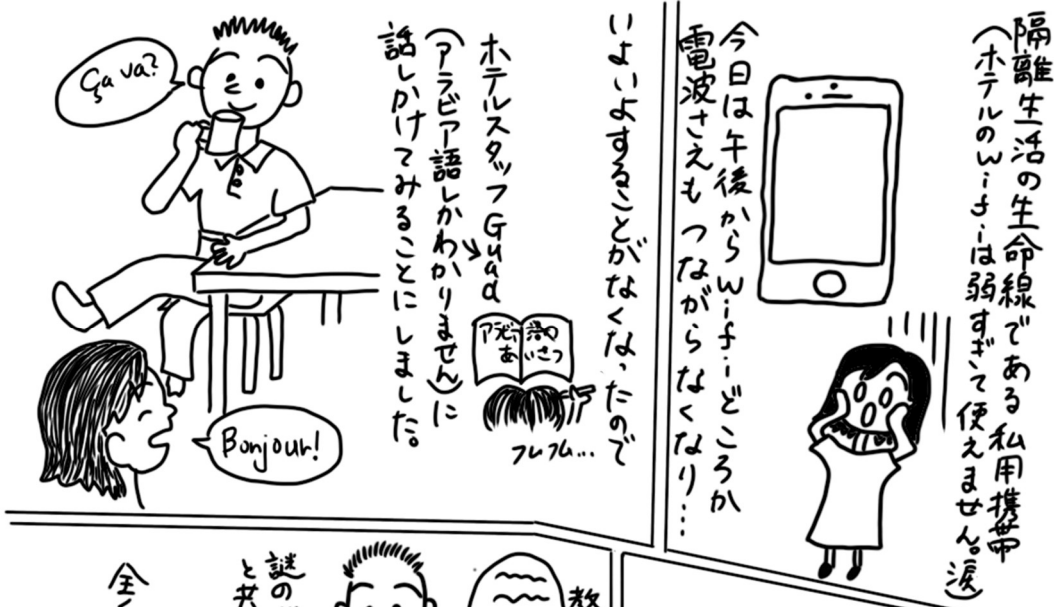 隔離生活の生命線である私用携帯
(ホテルのwifiは弱すぎて使えません。涙)
今日は午後からwifiどころか
電波さえもつながらなくなり…
いよいよすることがなくなったので
ホテルスタッフGuad
(アラビア語しかわかりません)に
話しかけてみることにしました。
アラビア語の
あいさつ
フムフム…
Ça va?
Bonjour!
謎の
と共